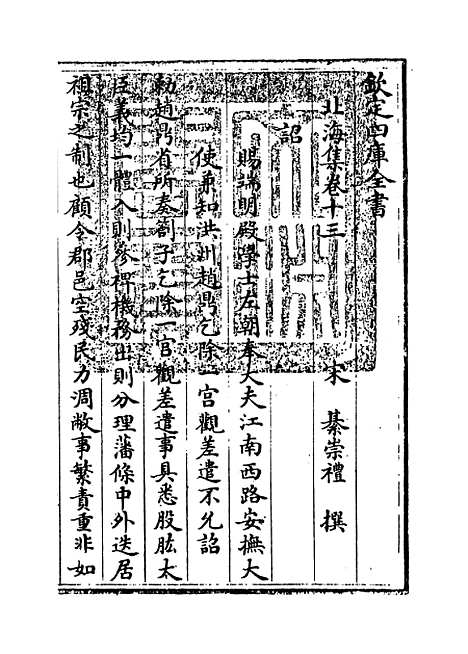 欽定四庫全書
北海集卷十三
宋 綦崇禮 撰
詔
賜端明殿學士左朝奉大夫江南西路安撫大
使兼知洪州趙鼎乞除一宮觀差遣不允詔
勅趙鼎省所奏劄子乞除一宮觀差遣事具悉股肱大
臣義均一體入則參裨機務出則分理藩條中外迭居
祖宗之制也顧今郡邑空殘民力凋敝事繁責重非如